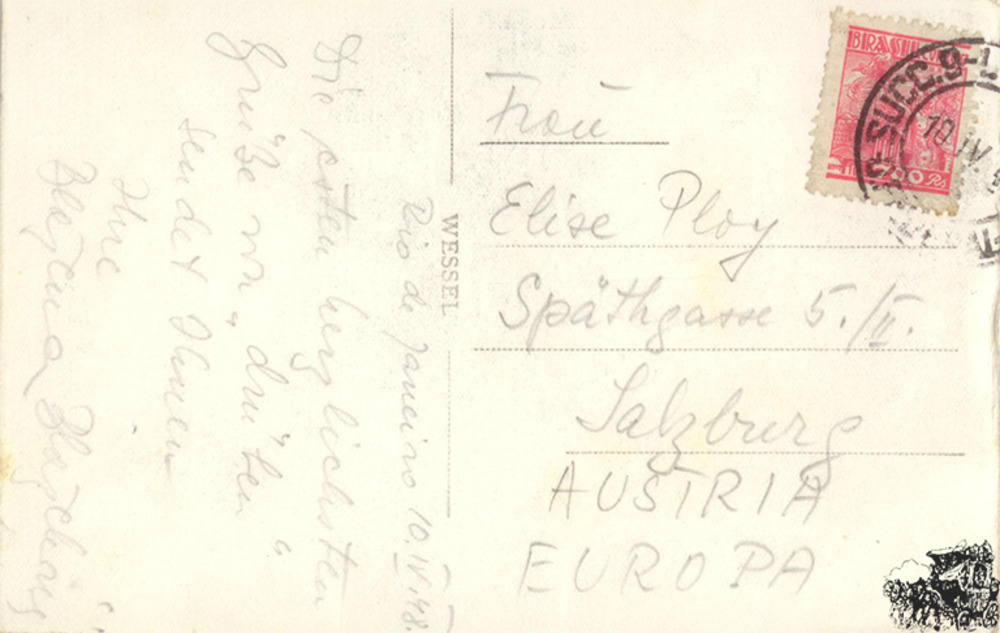 Rio de Janeiro 10.IV.48.
Die ersten herzlichsten
Grüße von "drüben"
sendet Ihnen
Ihre
WESSEL
BRASIL
700 Rs
SUCC. 9-
10 IV.
Frau
Elise Ploy
Späthgasse 5./II.
Salzburg
AUSTRIA
EUROPA